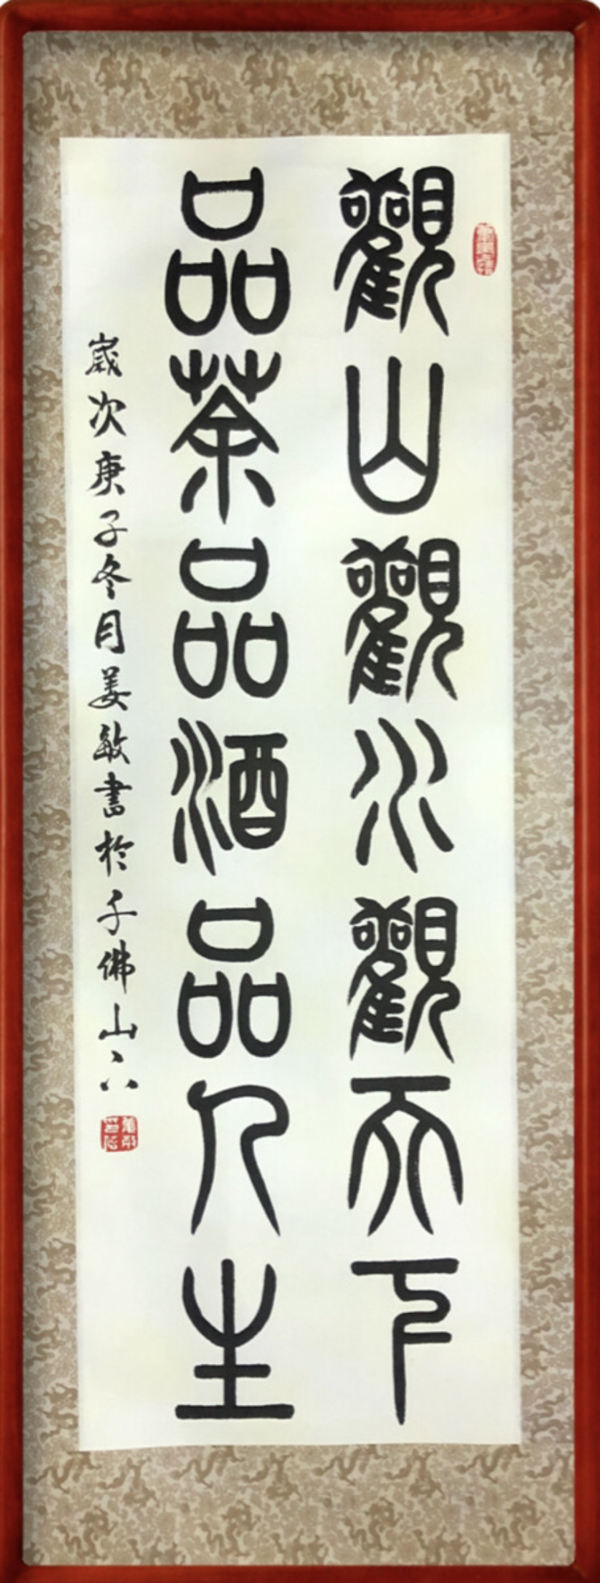 觀山觀水觀天下
品茶品酒品人生
歲次庚子冬月姜敏書於千佛山下